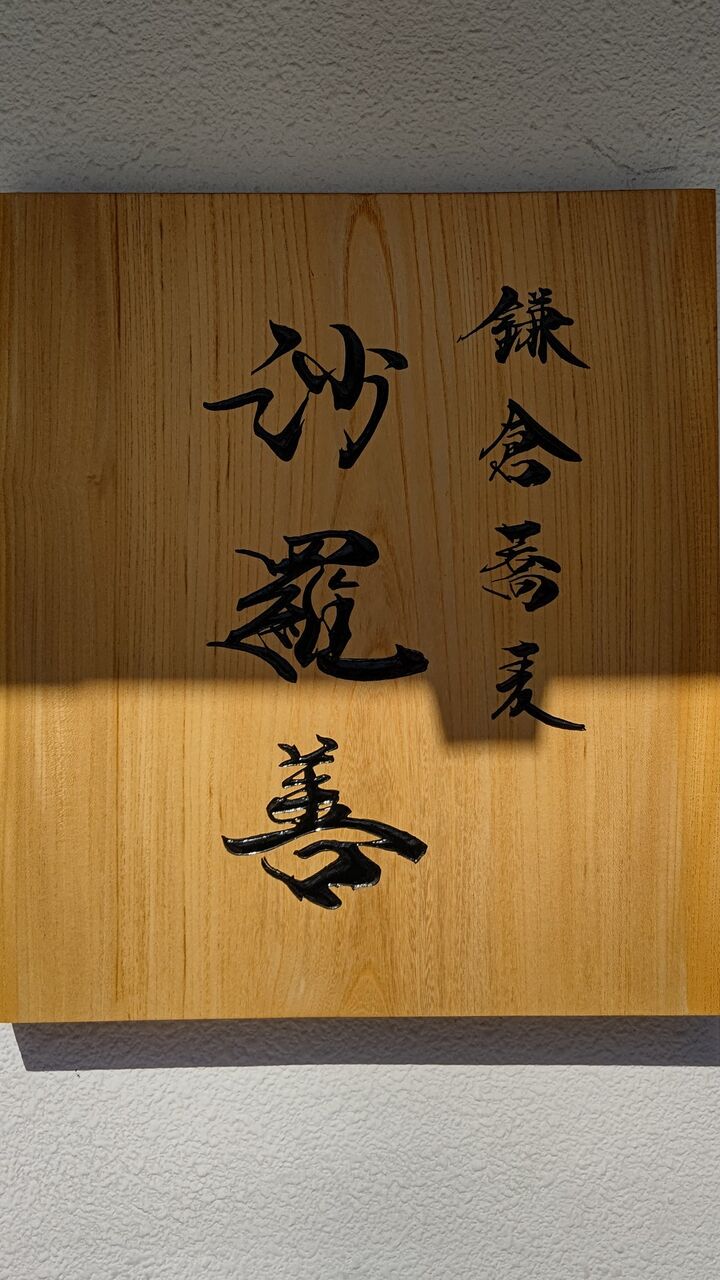 鎌倉蕎麦
沙羅善